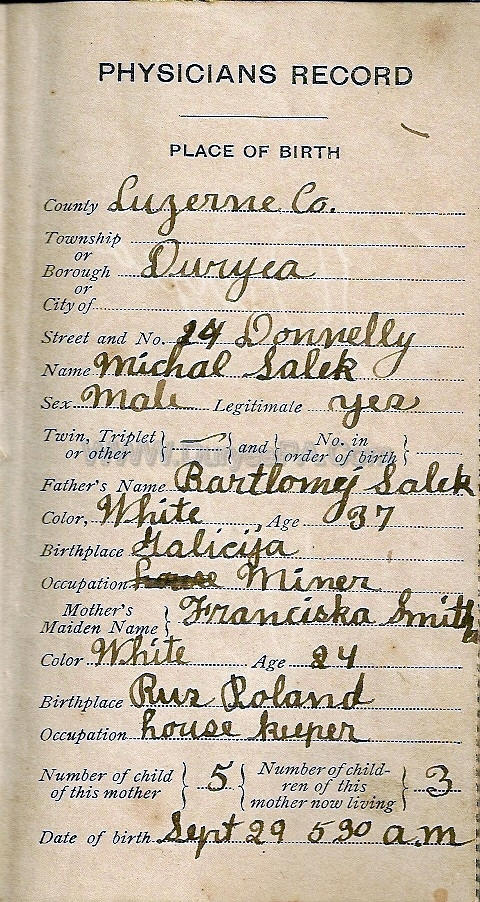 PHYSICIANS RECORD
PLACE OF BIRTH
County Luzerne Co.
Township
or
Borough Duryea
or
City of
Street and No. 24 Donnelly
Name Michal Salek
Sex Male Legitimate yes
Twin, Triplet or other } { and { No. in order of birth }
Father's Name Bartlomej Salek
Color, White Age 37
Birthplace Galicija
Occupation house Miner
Mother's Maiden Name } Franciska Smith
Color White Age 24
Birthplace Rus Poland
Occupation house keeper
Number of child of this mother } 5 { Number of children of this mother now living } 3
Date of birth Sept 29 5 30 a.m